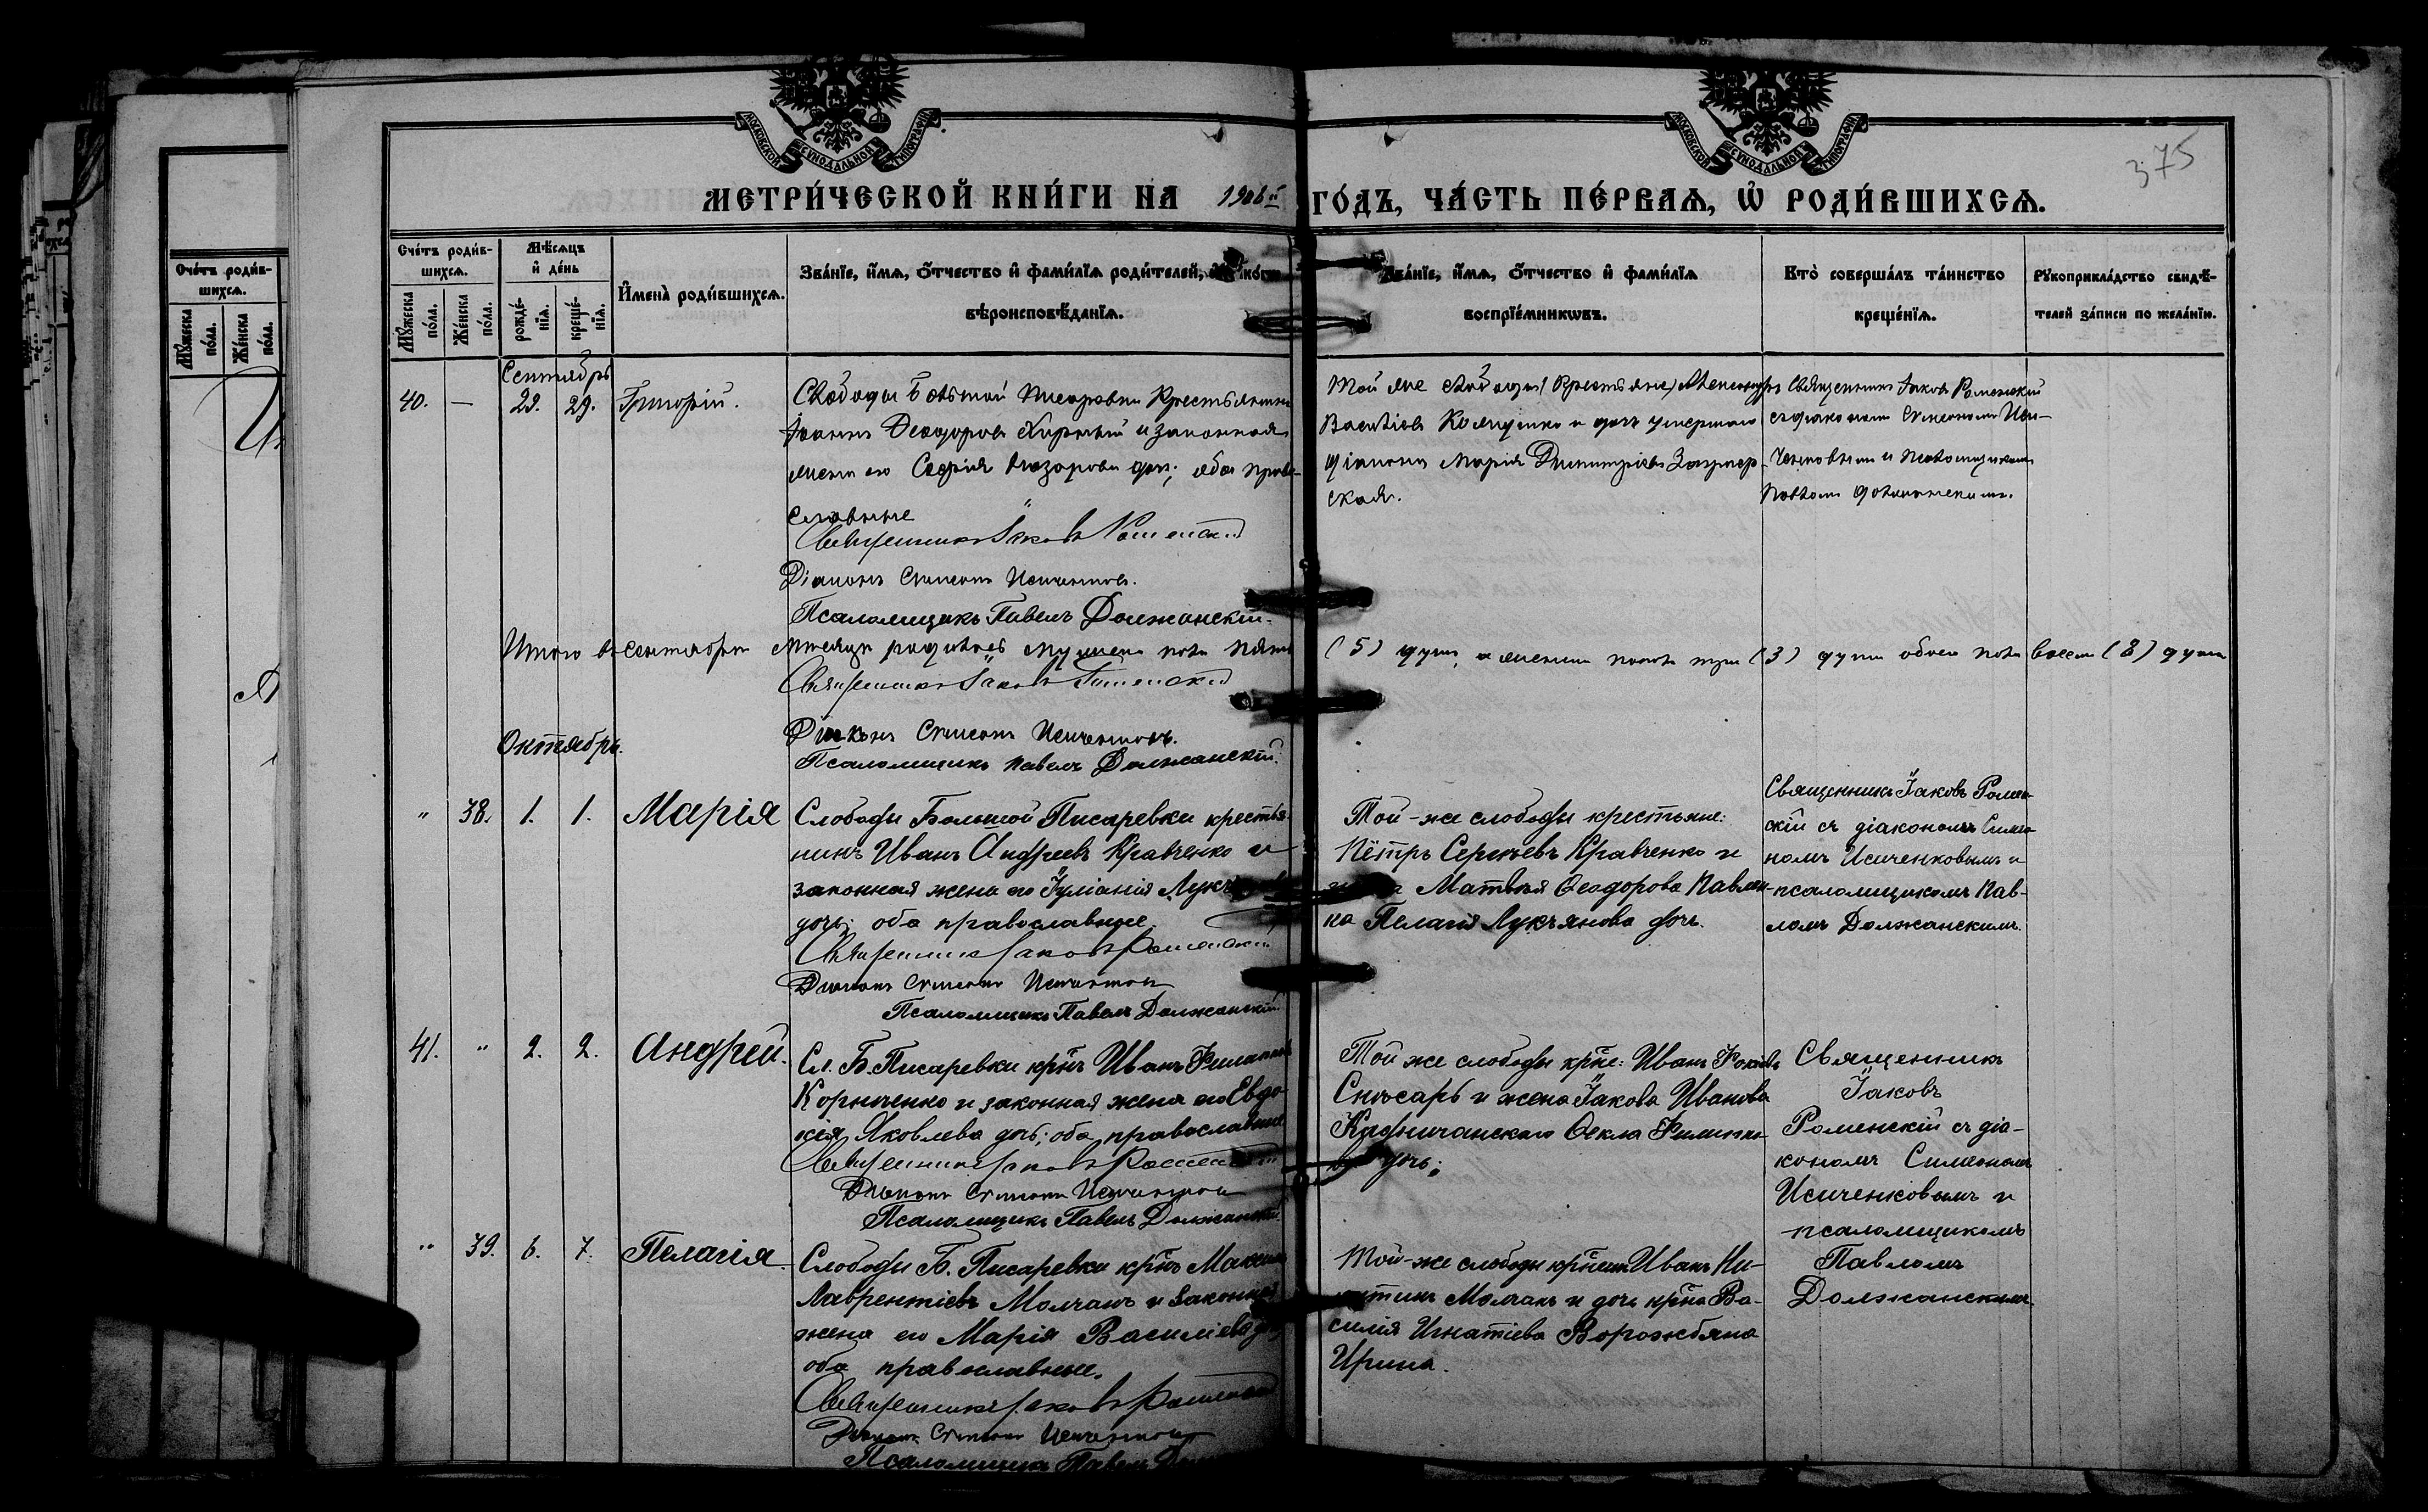 МОСКОВСКОЙ СѴНОДАЛЬНОЙ ТИПОГРАФІИ
МОСКОВСКОЙ СѴНОДАЛЬНОЙ ТИПОГРАФІИ
375
МЕТРИ́ЧЕСКОЙ КНИ́ГИ НА 1906й ГО́ДЪ, ЧА́СТЬ ПЕ́РВАѦ, Ѡ҆ РОДИ́ВШИХСѦ.
Сче́тъ роди́в-
шихсѧ.
Мꙋ́жеска по́ла.
Же́нска по́ла.
Сче́тъ роди́в-
шихсѧ.
Мꙋ́жеска по́ла.
Же́нска по́ла.
Мѣ́сѧцъ
и҆ де́нь
рожде́-
нїѧ.
креще́-
нїѧ.
И҆мена̀ роди́вшихсѧ.
Зва́нїе, и҆́мѧ, ѻ҆́тчество и҆ фами́лїѧ роди́телей,
вѣроисповѣ́данїѧ.
Зва́нїе, и҆́мѧ, ѻ҆́тчество и҆ фами́лїѧ
воспрїе́мникѡвъ.
Кто̀ соверша́лъ та́инство
креще́нїѧ.
Рꙋкоприкла́дство свидѣ́-
телей за́писи по жела́нїю.
Сентябрь
40. — 29. 29. Григорій.
Слободы Большой Писаревки Крестьянинъ
Іоаннъ Ѳеодоровъ и законная
жена его Софія Назарова доч; оба право-
славные
Священникъ Іаковъ Роменскій
Діаконъ Симеонъ Исиченковъ.
Псаломщикъ Павелъ Должанскій.
Той же слободы Крестьяне: Александръ
Васильевъ и дочь умершаго
діакона Марія Димитріева
ская.
Священникъ Іаковъ Роменскій
съ діакономъ Симеономъ Иси-
ченковымъ и псаломщикомъ
Павломъ Должанскимъ.
Итого въ сентябрѣ мѣсяцѣ родилось мужеска пола пять (5) душъ, а женска пола три (3) души обоего пола восемь (8) душъ
Священникъ Іаковъ Роменскій
Діаконъ Симеонъ Исиченковъ.
Псаломщикъ Павелъ Должанскій.
Октябрь.
" 38. 1. 1. Марія
Слободы Большой Писаревки крестья-
нинъ Иванъ Андреевъ Кравченко и
законная жена его Іуліанія
дочь; оба православные
Священникъ Іаковъ Роменскій
Діаконъ Симеонъ Исиченковъ
Псаломщикъ Павелъ Должанскій
Той-же слободы крестьяне:
Петръ Сергѣевъ Кравченко и
Матвѣя Ѳеодорова Павлен-
ка Пелагія Лукьянова дочь.
Священникъ Іаковъ Ромен-
скій съ діакономъ Симео-
номъ Исиченковымъ и
псаломщикомъ Пав-
ломъ Должанскимъ.
41. " 2. 2. Андрей.
Сл. Б. Писаревки кр̃нъ Иванъ
Корниченко и законная жена его Евдо-
кія Яковлева дочь; оба православные
Священникъ Іаковъ Роменскій
Діаконъ Симеонъ Исиченковъ
Псаломщикъ Павелъ Должанскій
Той же слободы кр̃не: Иванъ
Снѣсарь и жена Іакова Иванова
Ѳекла Филиппо-
ва дочь;
Священникъ
Іаковъ
Роменскій съ діа-
кономъ Симеономъ
Исиченковымъ и
псаломщикомъ
Павломъ
Должанскимъ
" 39. 6. 7. Пелагія
Слободы Б. Писаревки кр̃нъ Максимъ
Лаврентіевъ Молчанъ и законная
жена его Марія Василіева
оба православные.
Священникъ Іаковъ Роменскій
Діаконъ Симеонъ Исиченковъ
Псаломщикъ Павелъ
Той-же слободы Иванъ Ни-
китинъ Молчанъ и дочь кр̃на Ва-
силія Игнатіева Ворожбяна
Ирина.